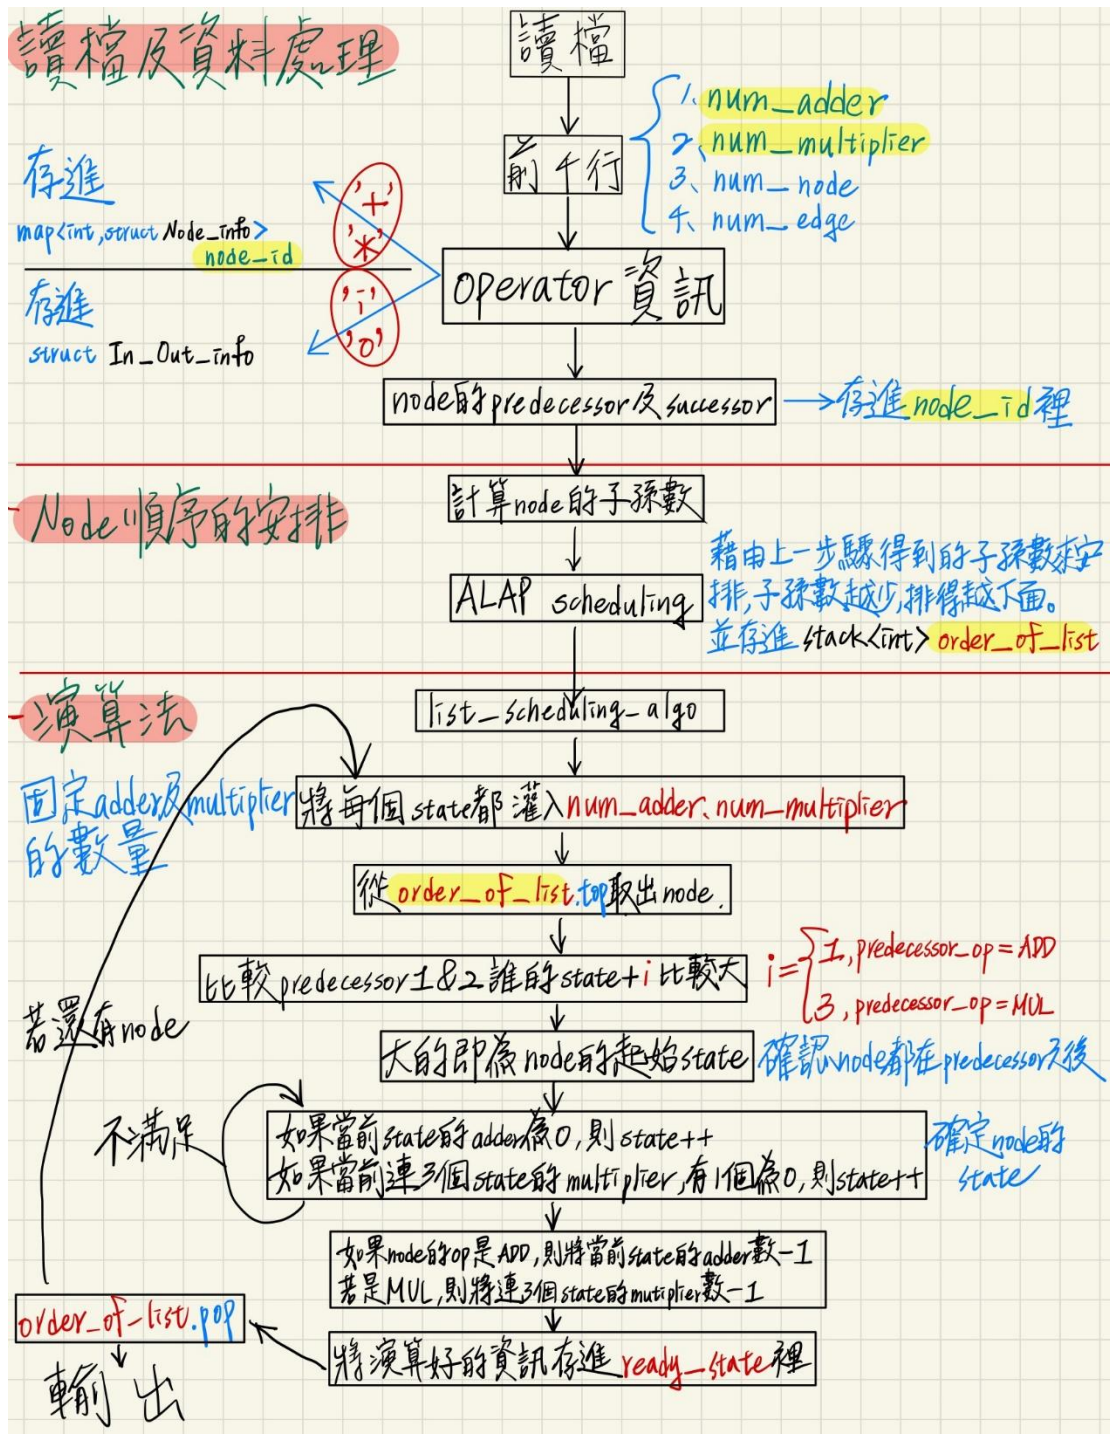 讀檔及資料處理
讀檔
前4行
1、num_adder
2、num_multiplier
3、num_node
4、num_edge
存進
map<int,struct Node_info>
node_id
'+'
'*'
存進
struct In_Out_info
'i'
'o'
operator 資訊
node的predecessor及successor
存進node_id裡
Node順序的安排
計算node的子孫數
ALAP scheduling
藉由上一步驟得到的子孫數來安
排,子孫數越少,排得越下面。
並存進 stack<int> order_of_list
演算法
list_scheduling_algo
固定adder及multiplier
的數量
將每個state都灌入num_adder、num_multiplier
從order_of_list.top取出node.
比較predecessor1&2誰的state+i比較大
i=
1, predecessor_op=ADD
3, predecessor_op=MUL
若還有node
大的即為node的起始state
確認node都在predecessor之後
不滿足
如果當前state的adder為0,則state++
如果當前連3個state的multiplier,有1個為0,則state++
確定node的
state
如果node的op是ADD,則將當前state的adder數-1
若是MUL,則將連3個state的mutiplier數-1
order_of_list.pop
將演算好的資訊存進ready_state裡
輸出